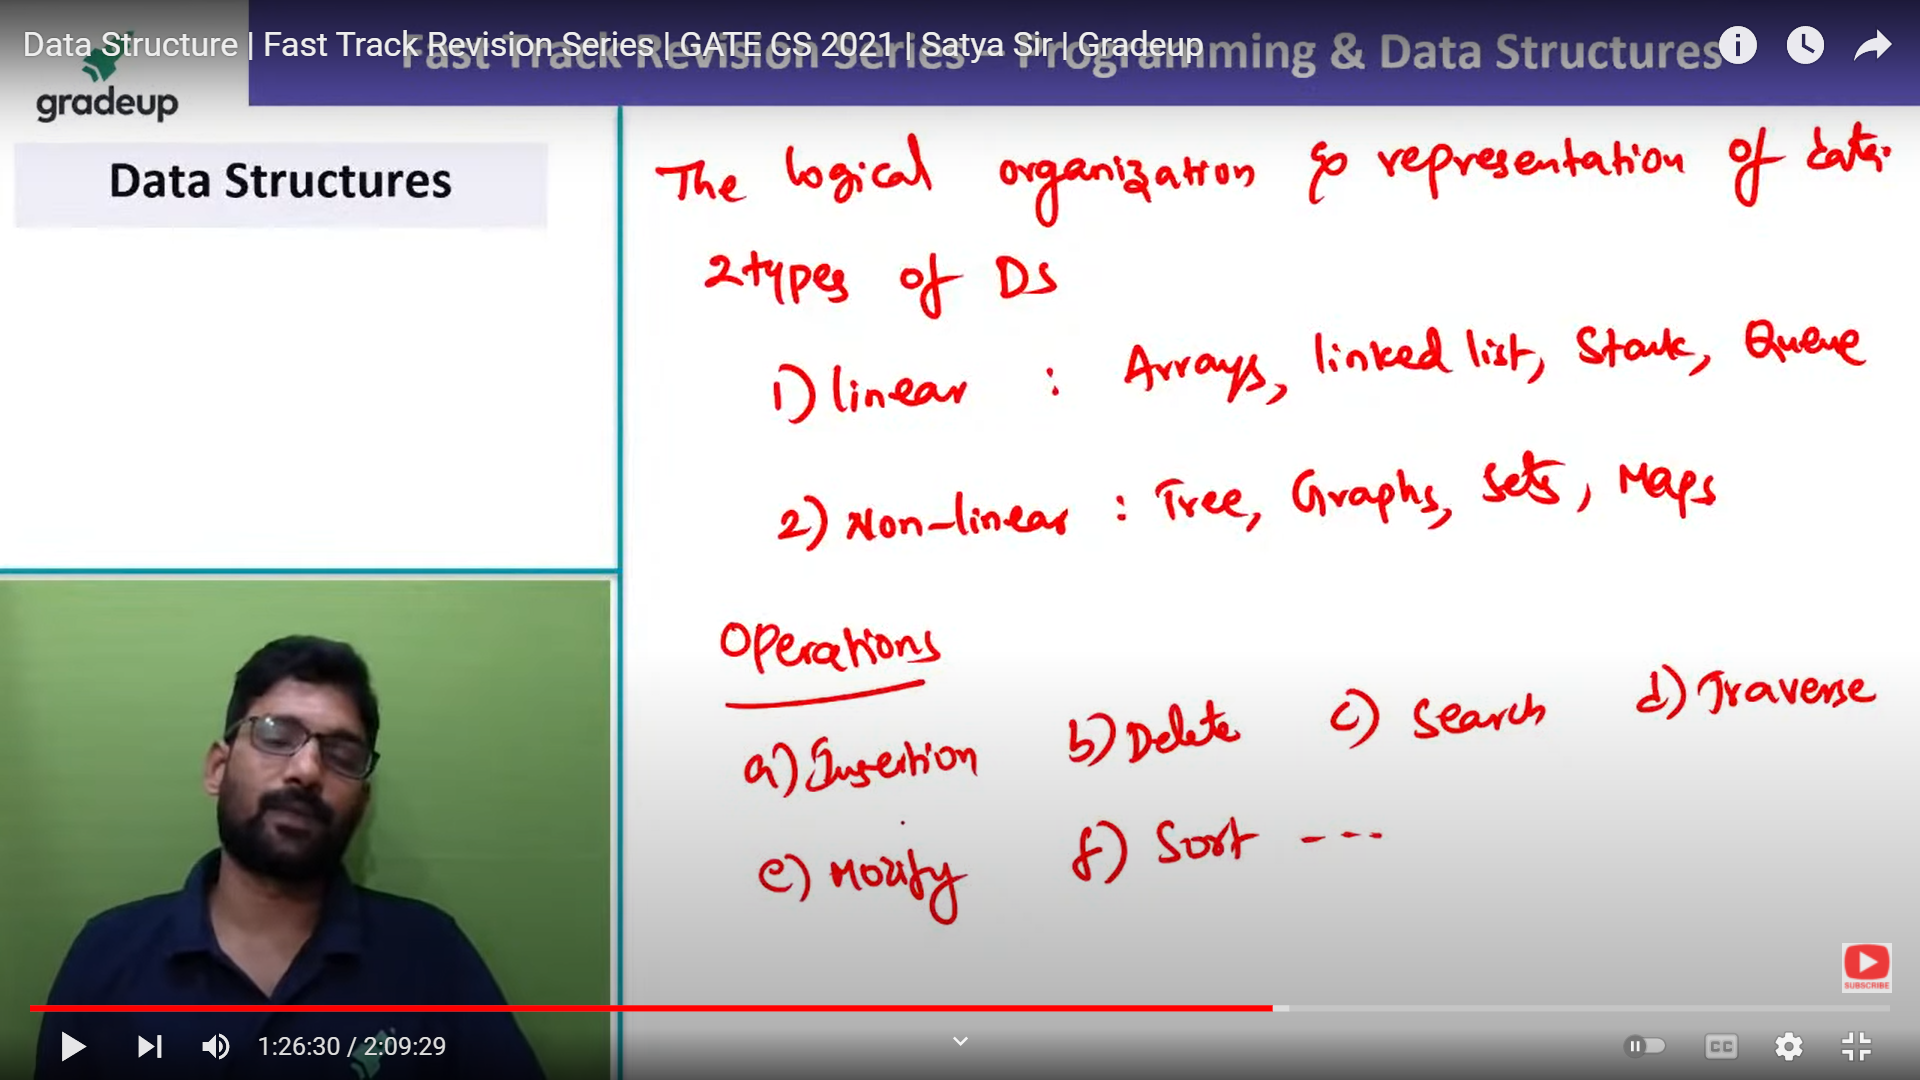 Data Structure | Fast Track Revision Series | GATE CS 2021 | Satya Sir | Gradeup
Fast Track Revision Series - Programming & Data Structures
gradeup
Data Structures
The logical organization & representation of data.
2 types of DS
1) linear : Arrays, linked list, Stack, Queue
2) Non-linear : Tree, Graphs, Sets, Maps
Operations
a) Insertion b) Delete c) Search d) Traverse
e) Modify f) Sort ----
SUBSCRIBE
1:26:30 / 2:09:29
CC